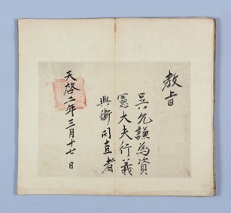 教旨
吳允謙為資
憲大夫行義
興衛司直者
天啓二年三月十七日